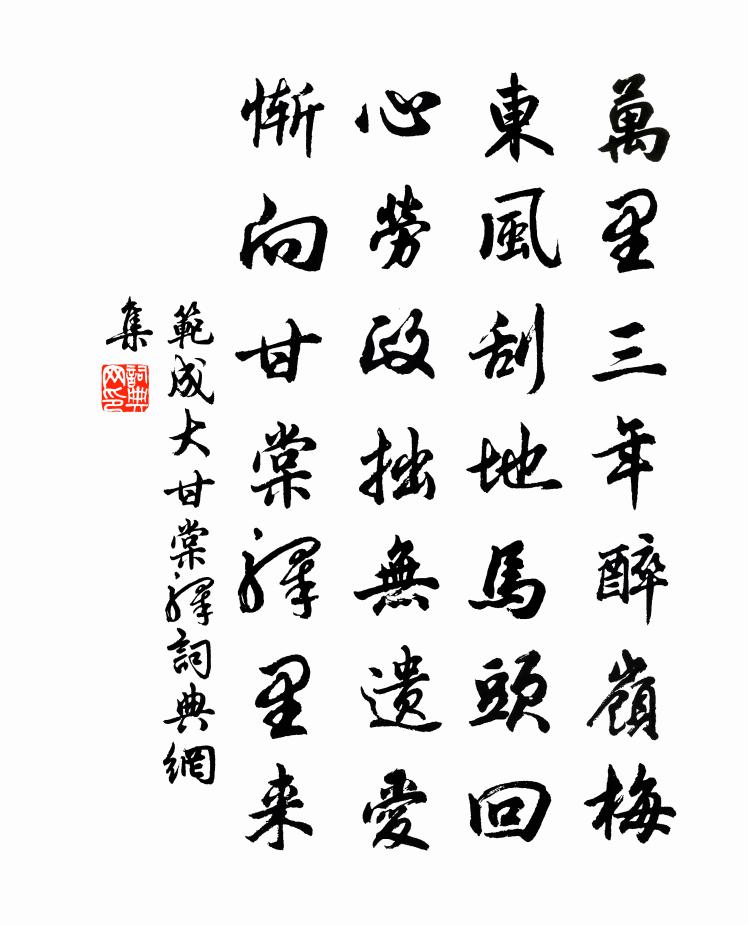 萬里三年醉嶺梅
東風刮地馬頭回
心勞政拙無遺愛
慚向甘棠驛里来
範成大甘棠驛詞典網
集
詞典网印